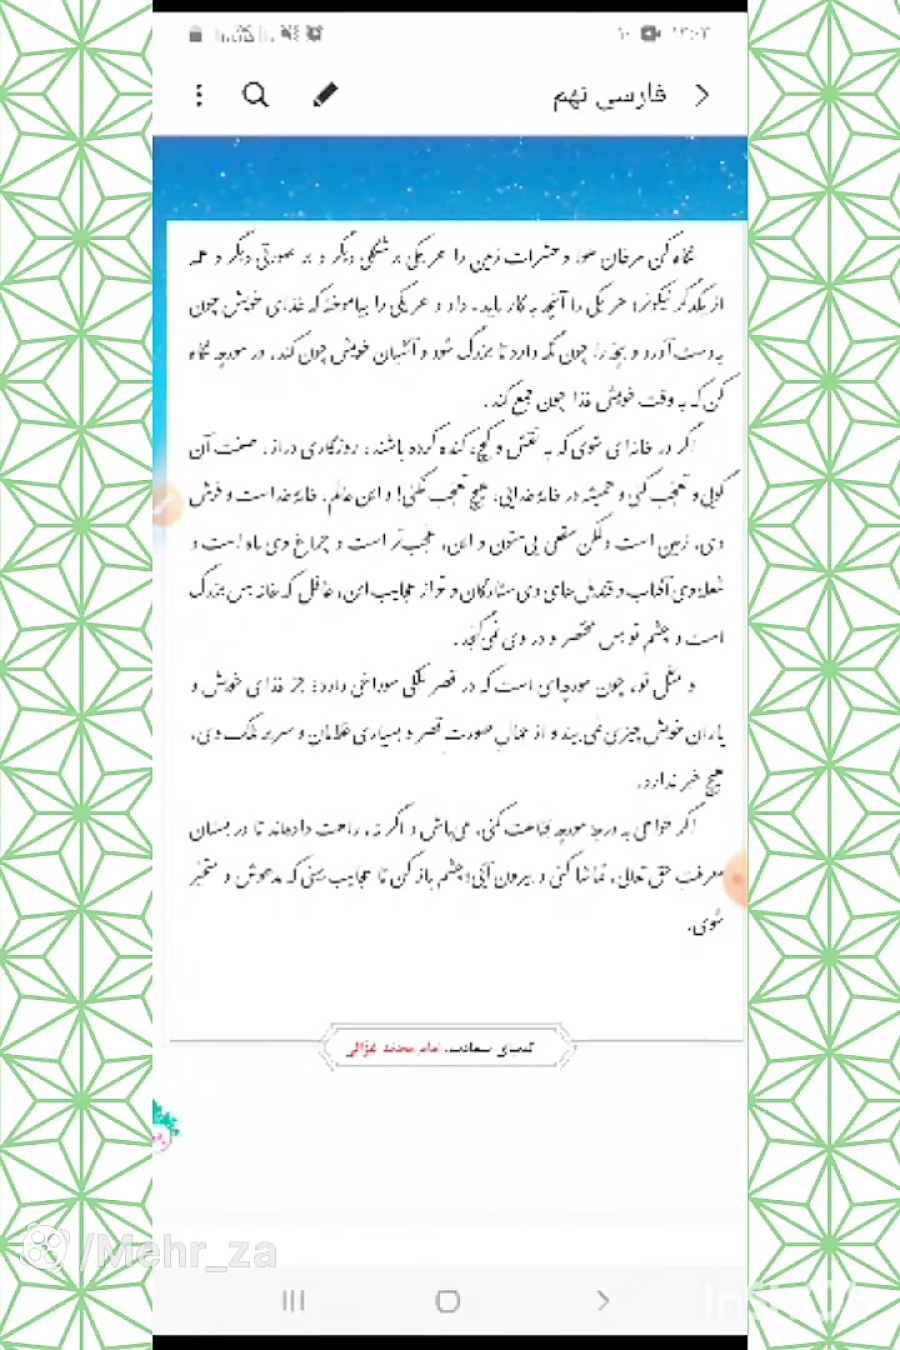 ۱۳:۰۳
فارسی نهم
نگاه کن مرغان هوا و حشرات زمین را هر یکی بر شکلی دیگر و بر صورتی دیگر و همه
از یکدگر نیکوتر؛ هر یکی را آنچه به کار باید، داد و هر یکی را بیاموخته که غذای خویش چون
به دست آورد و بچه را چون نگه دارد تا بزرگ شود و آشیان خویش چون کند. در مورچه نگاه
کن که به وقت خویش غذا چون جمع کند.
اگر در خانه‌ای شوی که به نقش و گچ، کنده کرده باشند، روزگاری دراز، صفت آن
گویی و تعجب کنی و همیشه در خانهٔ خدایی، هیچ تعجب نکنی! و این عالم، خانهٔ خداست و فرش
وی، زمین است ولکن سقفی بی‌ستون و این، عجب‌تر است و چراغ وی ماه است و
شعلهٔ وی آفتاب و قندیل‌های وی ستارگان و تو از عجایب این، غافل که خانه بس بزرگ
است و چشم تو بس مختصر و در وی نمی‌گنجد.
و مثل تو، چون مورچه‌ای است که در قصر ملکی سوراخی دارد؛ جز غذای خویش و
یاران خویش چیزی نمی‌بیند و از جمال صورت قصر و بسیاری غلامان و سریر ملک وی،
هیچ خبر ندارد.
اگر خواهی به درجهٔ مورچه قناعت کنی، می‌باش و اگر نه، راهت داده‌اند تا در بستان
معرفت حق تعالی، تماشا کنی و بیرون آیی؛ چشم باز کن تا عجایب بینی که مدهوش و متحیّر
شوی.
کیمیای سعادت، امام محمد غزالی
/Mehr_za
InShOt